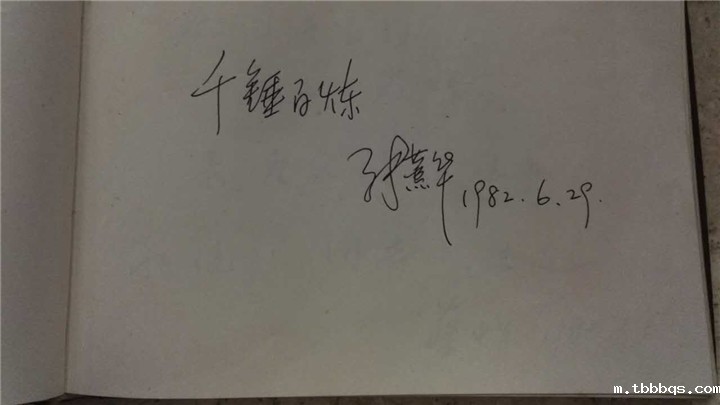 千錘百炼
1982.6.29.
m.tbbbqs.com